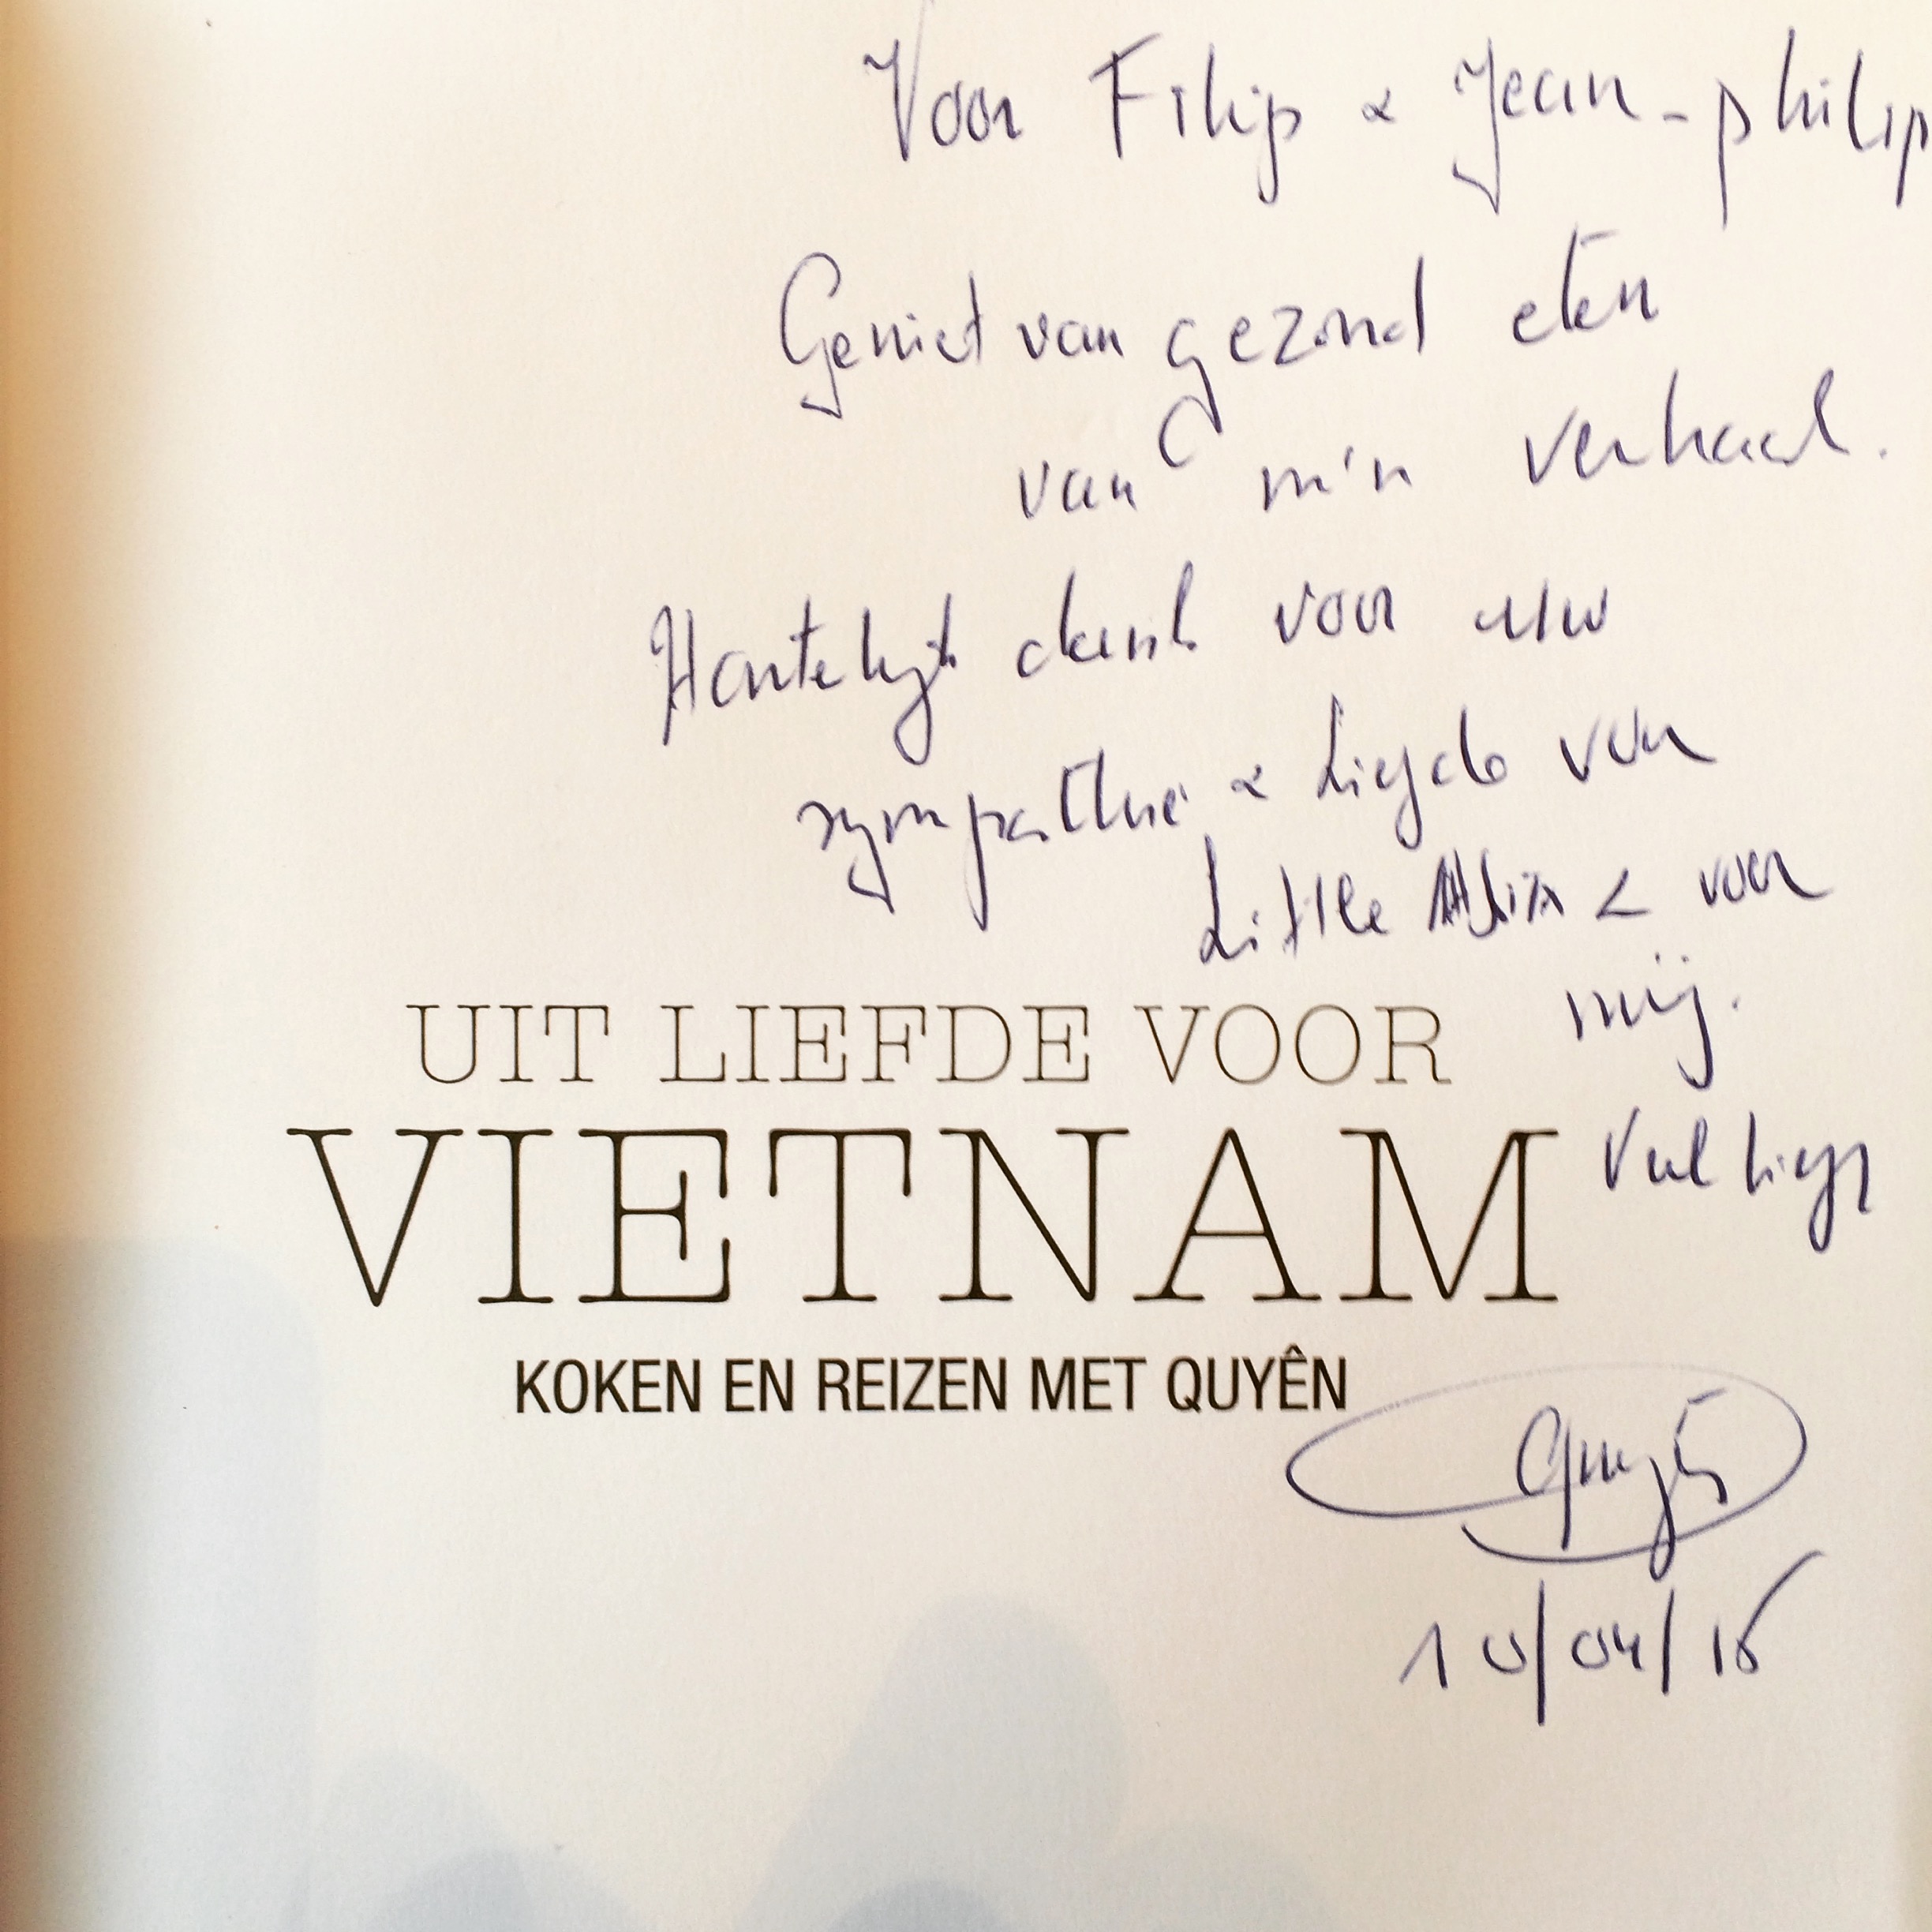 Voor Filip & Jean-philip
Geniet van gezond eten
van m'n verhaal.
Hartelijk dank voor uw
sympathie & Liefde voor
Little Asia & voor
mij.
UIT LIEFDE VOOR
VIETNAM
Veel liefs
KOKEN EN REIZEN MET QUYÊN
Quyên
10/04/16